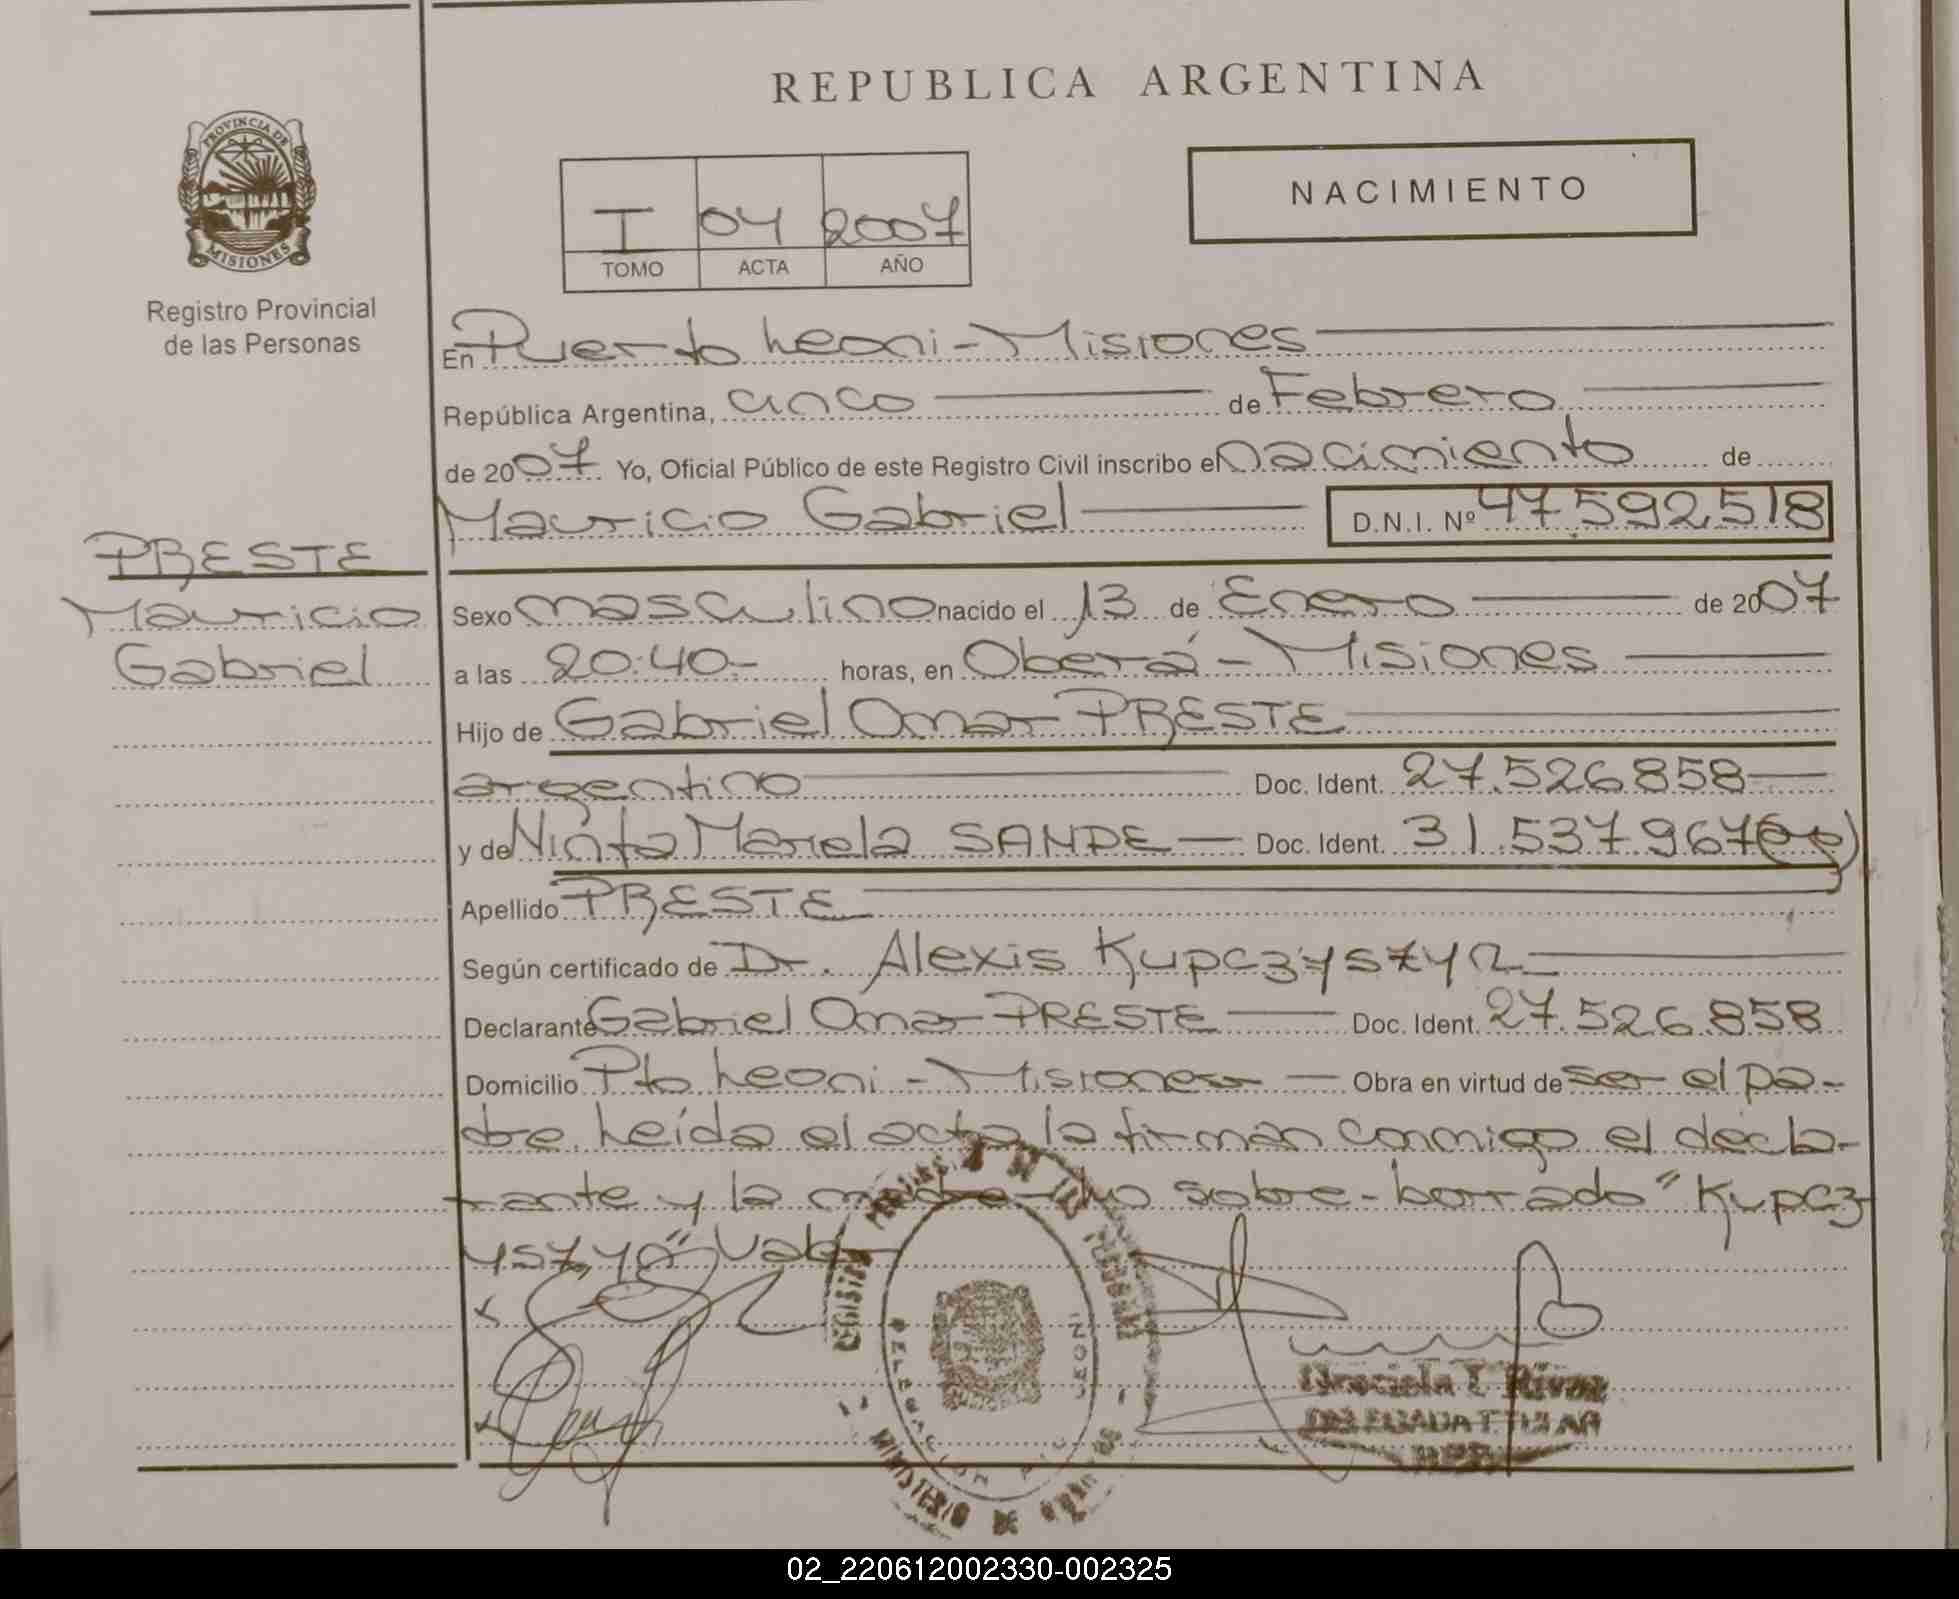 REPUBLICA ARGENTINA
PROVINCIA DE
MISIONES
Registro Provincial
de las Personas
I 04 2007
TOMO ACTA AÑO
NACIMIENTO
En Puerto Leoni - Misiones
República Argentina, cinco de Febrero
de 2007 Yo, Oficial Público de este Registro Civil inscribo el nacimiento de
Mauricio Gabriel D.N.I. Nº 47592518
PRESTE
Mauricio
Gabriel
Sexo masculino nacido el 13 de Enero de 2007
a las 20:40- horas, en Oberá - Misiones
Hijo de Gabriel Omar PRESTE
argentino Doc. Ident. 27.526.858
y de Ninfa Mariela SANDE Doc. Ident. 31.537.967
Apellido PRESTE
Según certificado de Dr. Alexis Kupczyszyn
Declarante Gabriel Omar PRESTE Doc. Ident. 27.526.858
Domicilio Pto Leoni - Misiones Obra en virtud de ser el pa-
dre. Leída el acta la firman conmigo el decla-
rante y la madre sobre-borrado "Kupcz
yszyn" Vale
DELEGACION
LEONI
MINISTERIO
Graciela T Rivas
DELEGADA TITULAR
02_220612002330-002325